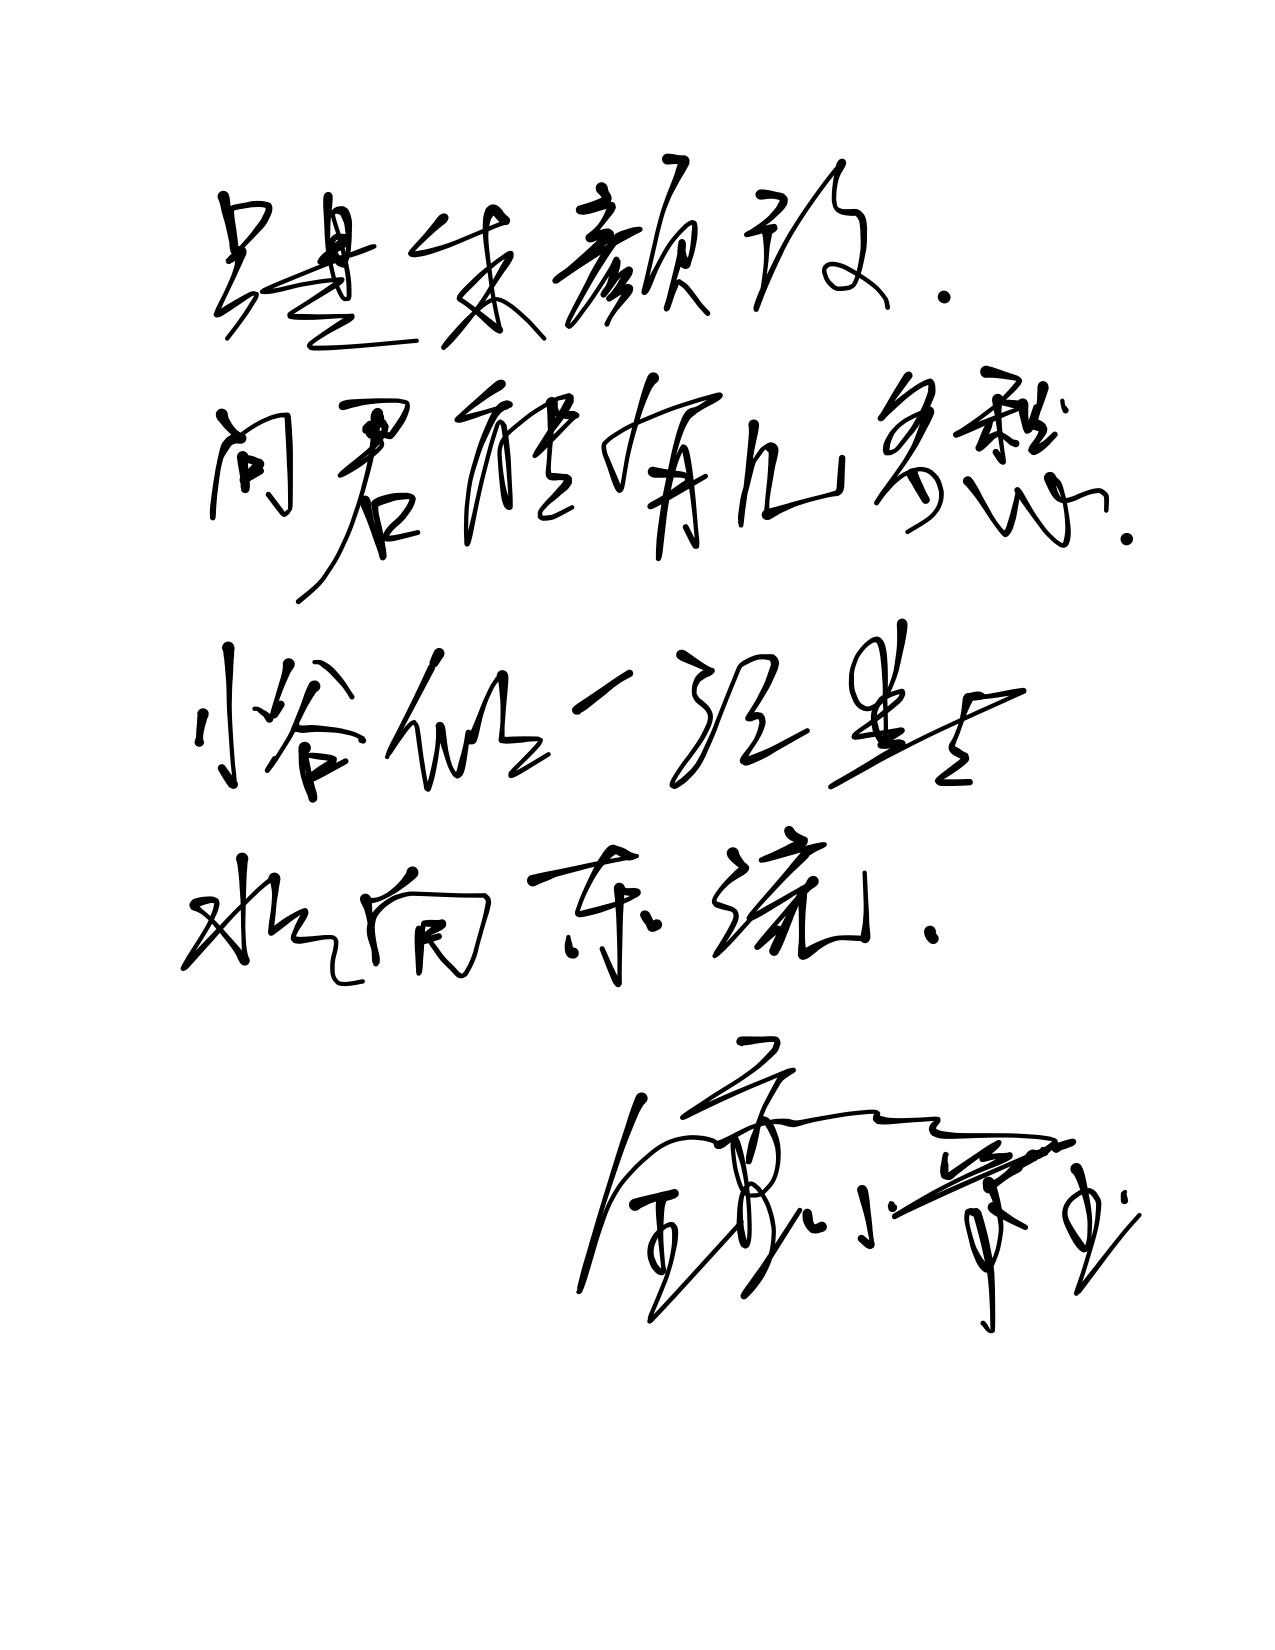 只是朱颜改.
问君能有几多愁.
恰似一江春
水向东流.
小 书